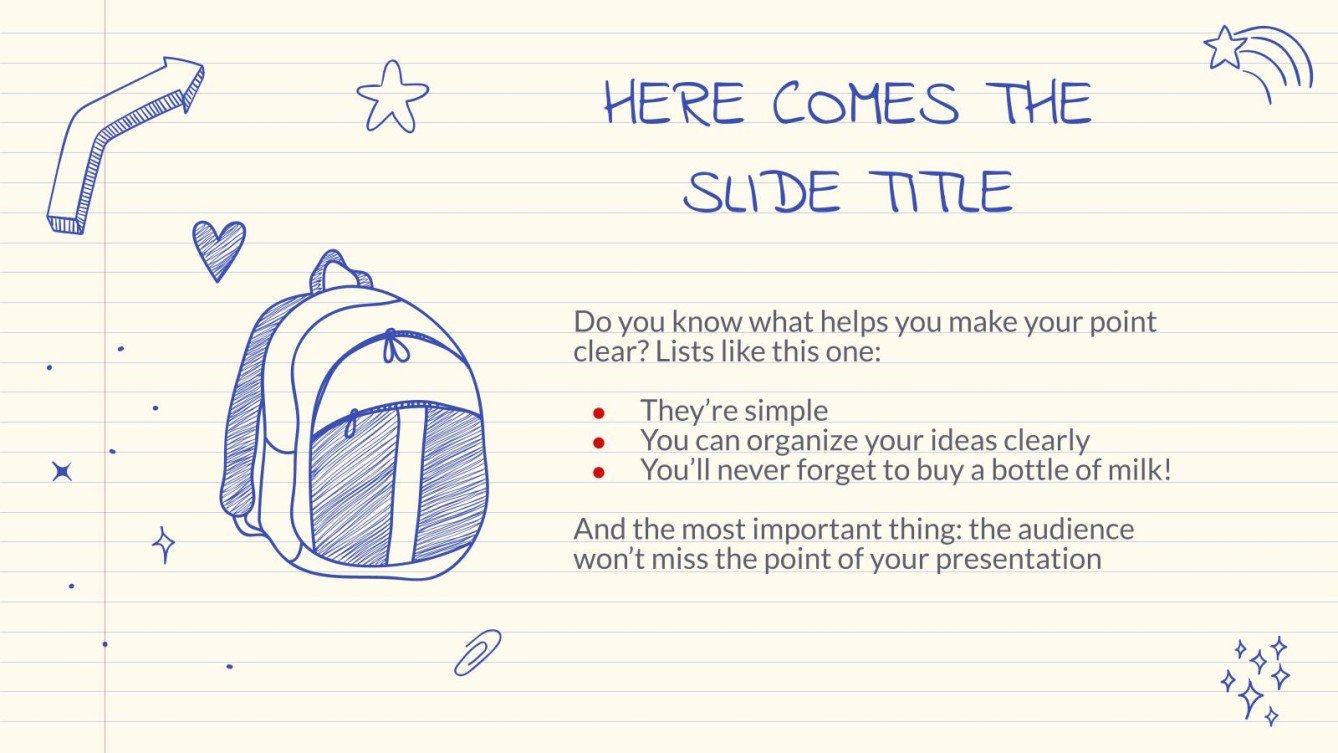 HERE COMES THE
SLIDE TITLE
Do you know what helps you make your point
clear? Lists like this one:
● They’re simple
● You can organize your ideas clearly
● You’ll never forget to buy a bottle of milk!
And the most important thing: the audience
won’t miss the point of your presentation